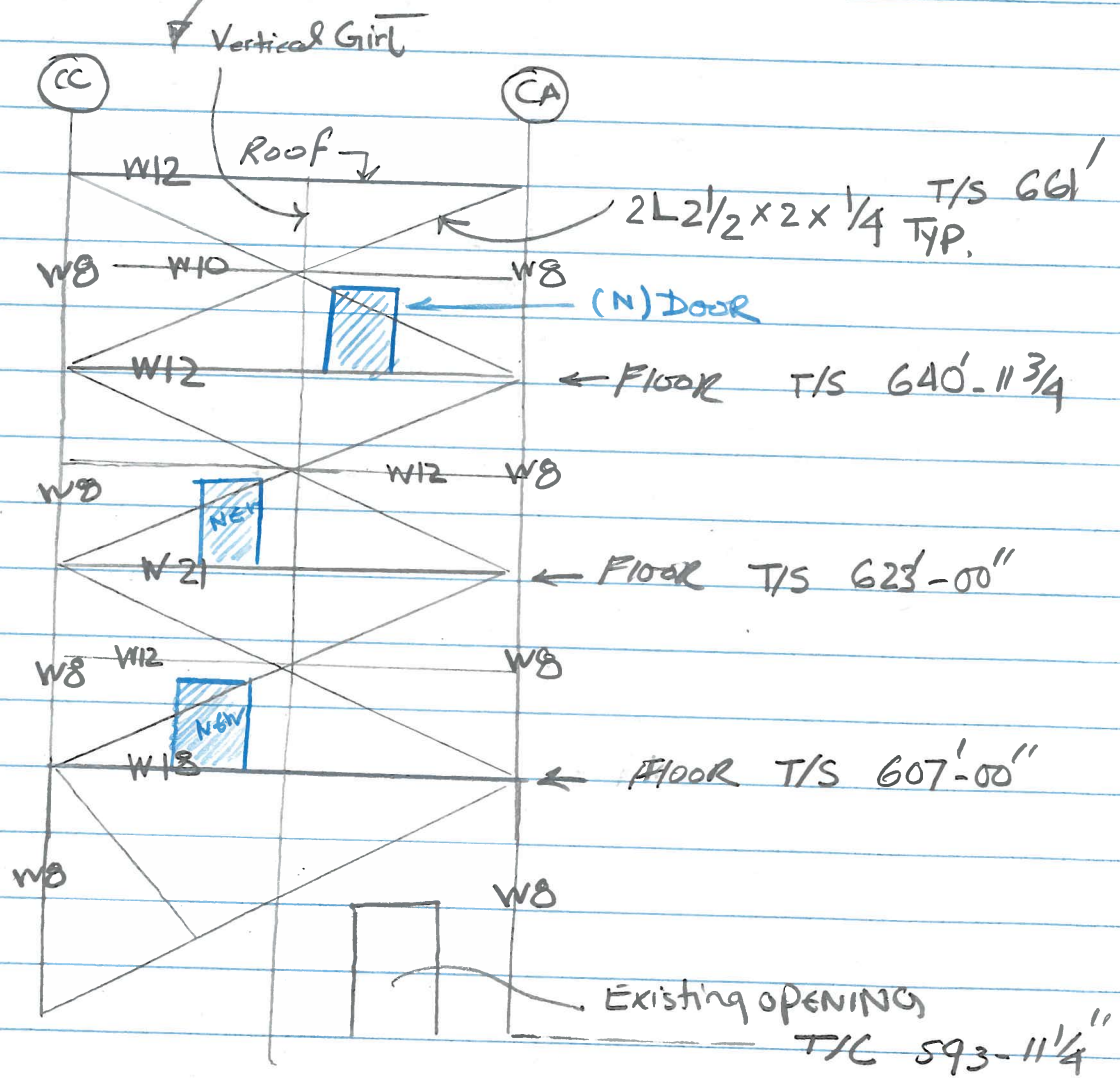 Vertical Girt
CC
CA
W12
Roof
T/S 661'
2L2 1/2 x 2 x 1/4 TYP.
W8
W10
W8
(N) DOOR
W12
FLOOR T/S 640'-11 3/4
W12
W8
W8
NEW
W21
FLOOR T/S 623'-00"
W12
W8
W8
NEW
W18
FLOOR T/S 607'-00"
W8
W8
Existing OPENING
T/C 593-11 1/4"